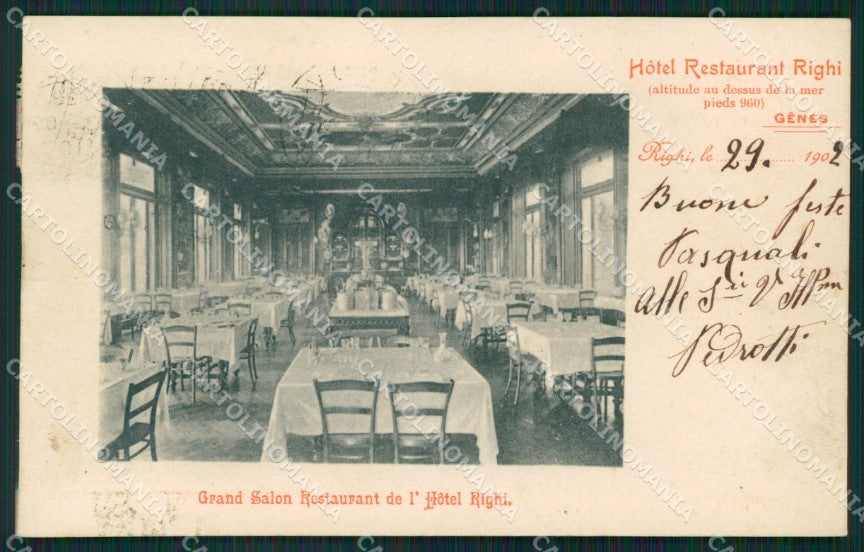 Hôtel Restaurant Righi
(altitude au dessus de la mer
pieds 960)
GÊNES
Righi, le 29. 1902
Buone feste
Pasquali
Alle
Pedrotti
Grand Salon Restaurant de l' Hôtel Righi.
CARTOLINOMANIA